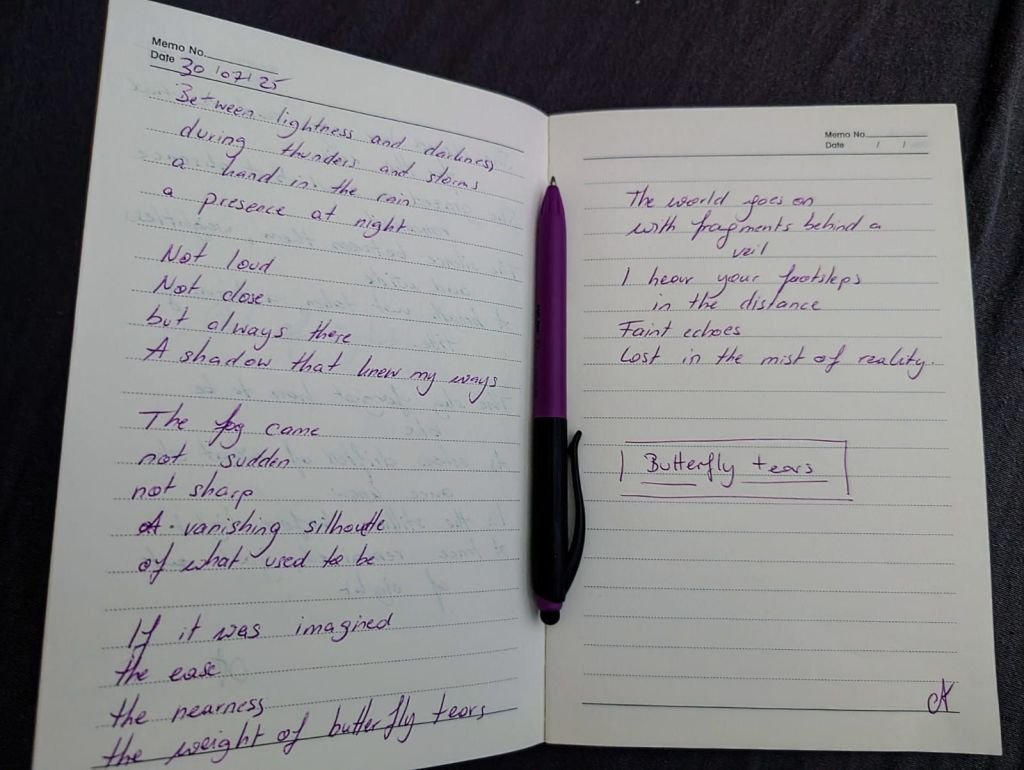 Memo No.
Date 30/07/25
Between lightness and darkness
during thunders and storms
a hand in the rain
a presence at night
Not loud
Not close
but always there
A shadow that knew my ways
The fog came
not sudden
not sharp
A vanishing silhouette
of what used to be
If it was imagined
the ease
the nearness
the weight of butterfly tears
Memo No.
Date / /
The world goes on
with fragments behind a
veil
I hear your footsteps
in the distance
Faint echoes
Lost in the mist of reality.
Butterfly tears